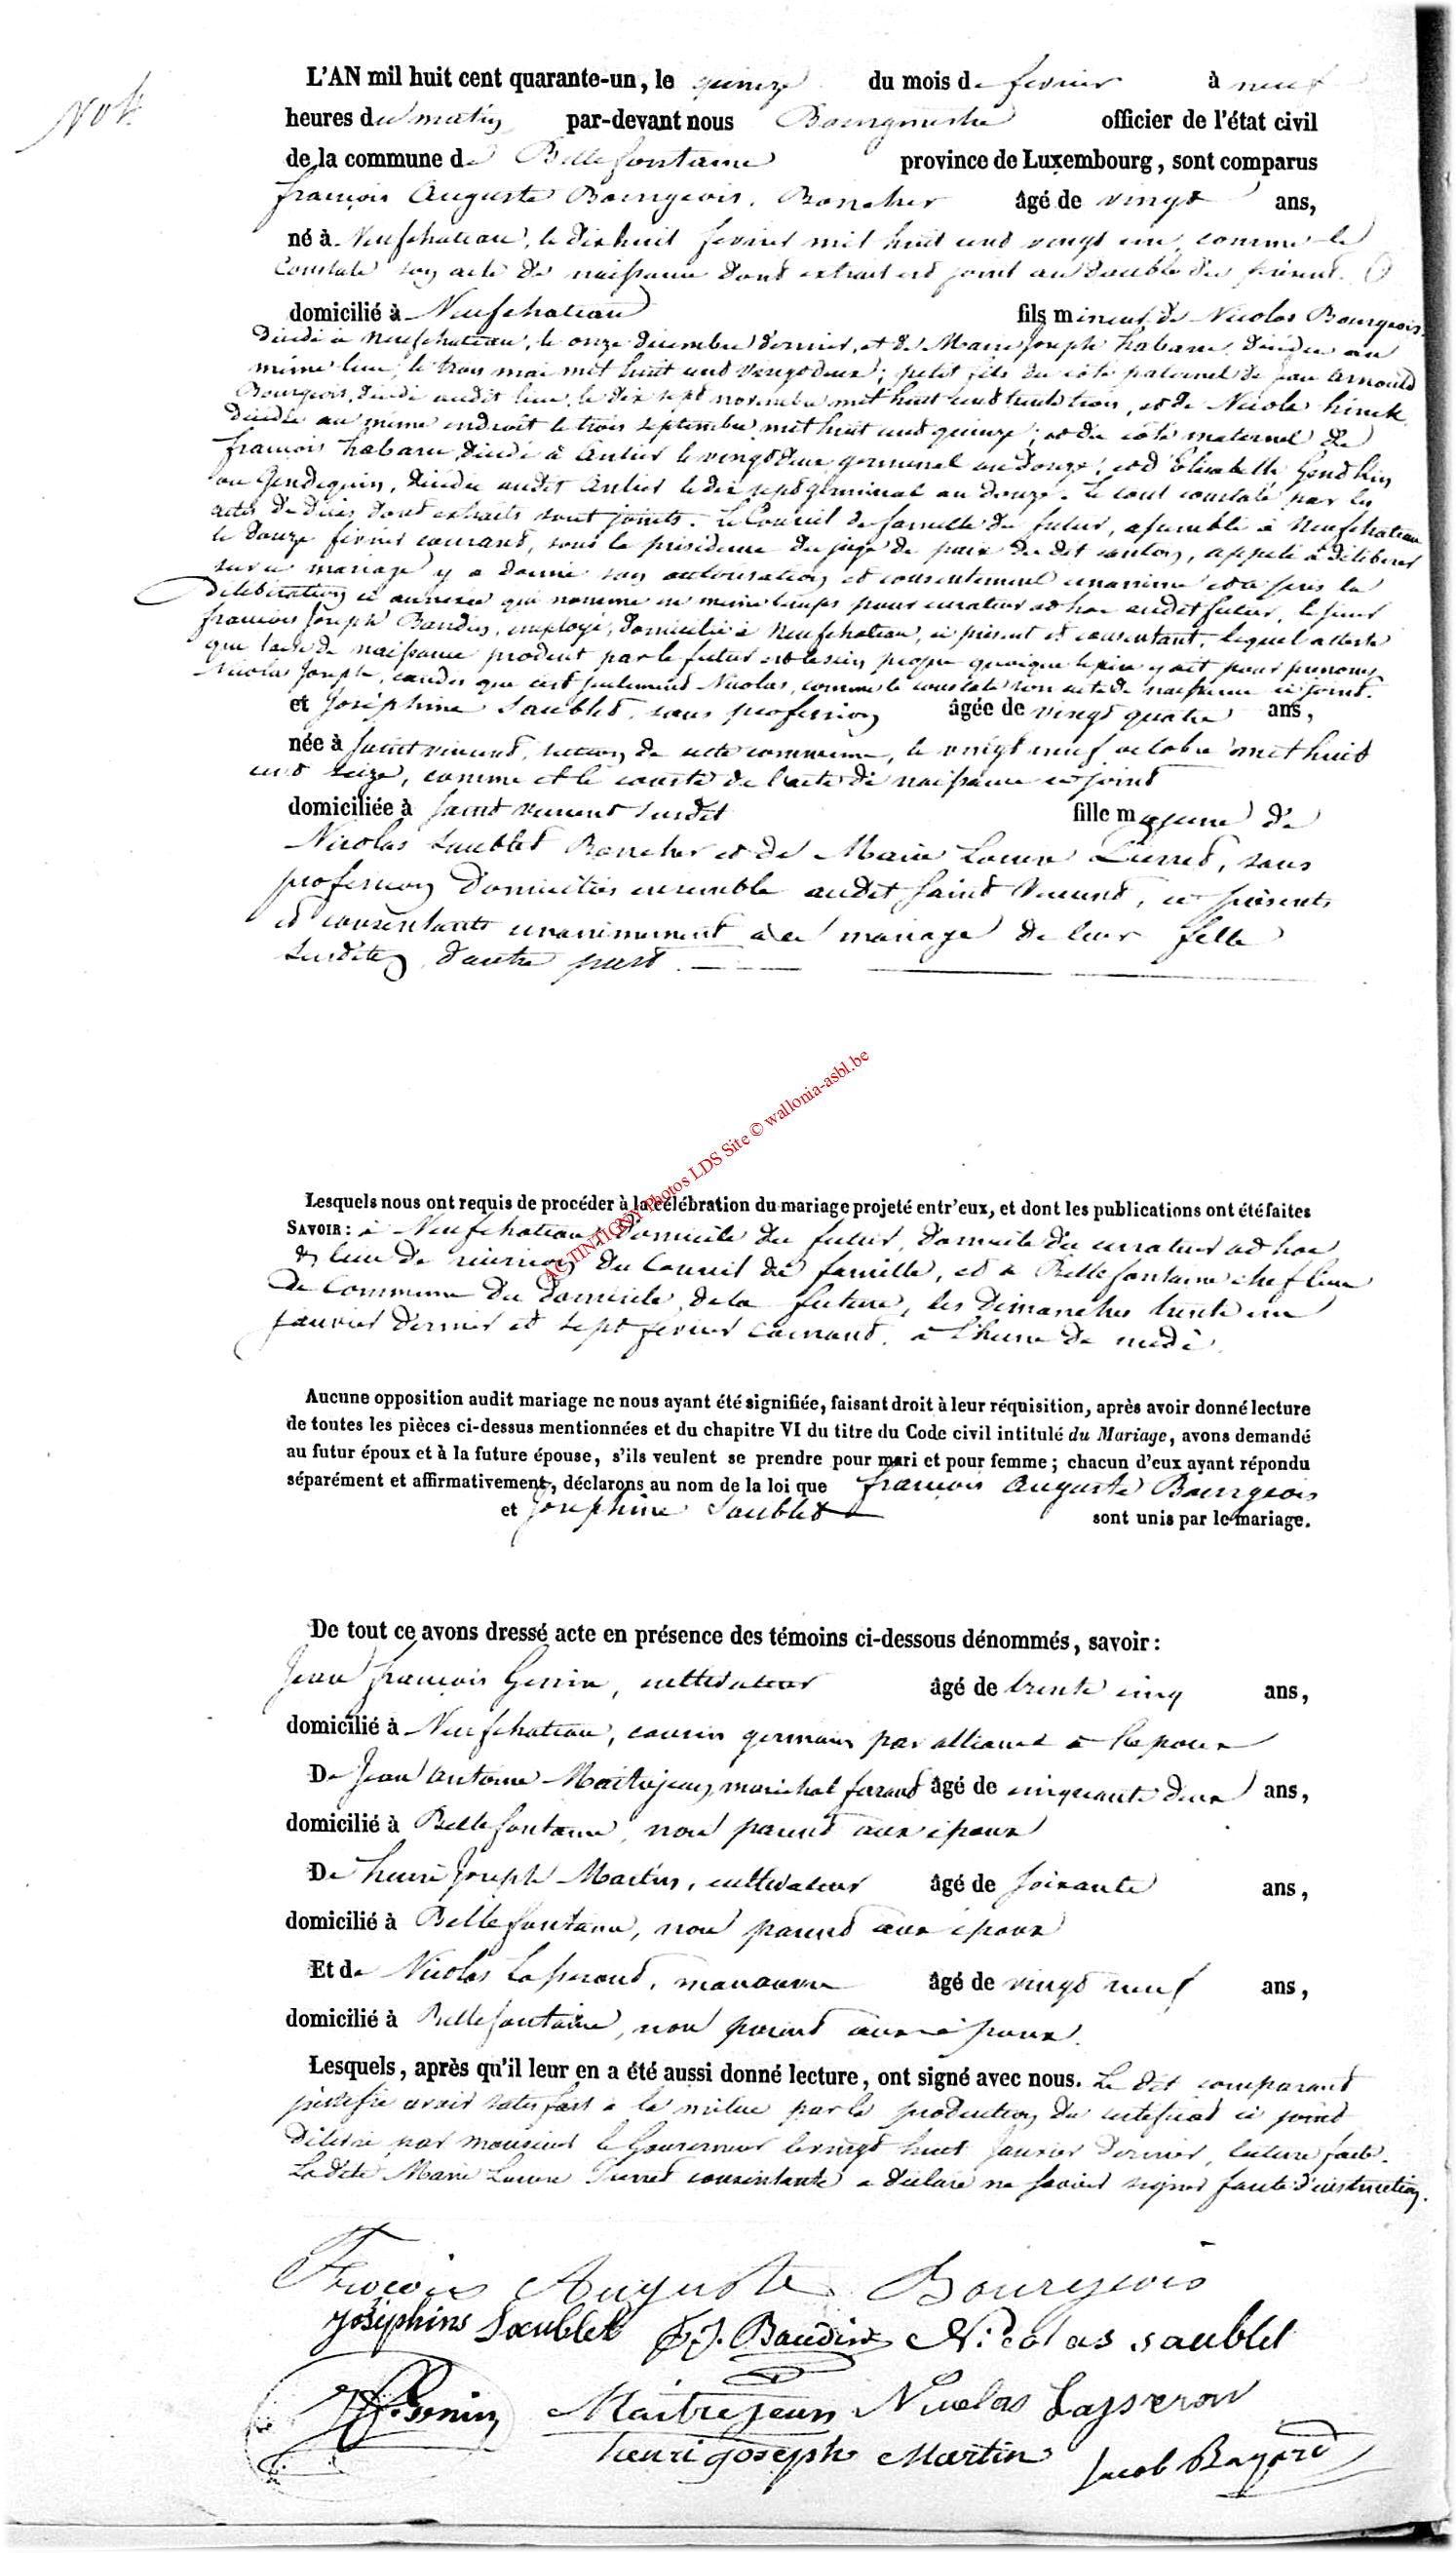 No 4.
L'AN mil huit cent quarante-un, le quinze du mois de fevrier à neuf
heures du matin par-devant nous Bourgmestre officier de l'état civil
de la commune de Bellefontaine province de Luxembourg, sont comparus
françois Auguste Bourgeois, Boucher âgé de vingt ans,
né à Neufchateau, le dix huit fevrier mil huit cent vingt un, comme le
Constate son acte de naissance dont extrait est joint au double du présent.
domicilié à Neufchateau fils mineur de Nicolas Bourgeois
décédé à Neufchateau, le onze décembre dernier, et de Marie Joseph habaru décédée au
même lieu, le trois mai mil huit cent vingt deux; petit fils du côté paternel de Jean Arnould
Bourgeois, décédé audit lieu, le dix sept novembre mil huit cent trente trois, et de Nicole hinck
décédée au même endroit le trois septembre mil huit cent quinze; et du côté maternel de
françois habaru décédé à Anlier le vingt deux germinal an douze, et d'Elisabeth Gendkin
ou Gendequin, décédée audit Anlier le dix sept germinal an douze. Le tout constaté par les
actes de décès dont extraits sont joints. Le Conseil de famille du futur, assemblé à Neufchateau
le douze février courant, sous la présidence du juge de paix du dit canton, appelé à délibérer
sur ce mariage y a donné son autorisation et consentement unanime et a pris la
délibération ci annexée qui nomme en même temps pour curateur ad hoc audit futur, le sieur
françois Joseph Baudin, employé, domicilié à Neufchateau, ci présent et consentant, lequel atteste
que l'acte de naissance produit par le futur est le sien propre quoique le père y ait pour prenoms
Nicolas Joseph, tandis que c'est seulement Nicolas, comme le constate son acte de naissance ci joint.
et Joséphine Saublet, sans profession âgée de vingt quatre ans,
née à Saint vincent, section de cette commune, le vingt neuf octobre mil huit
cent seize, comme le conste de l'acte de naissance ci joint
domiciliée à Saint vincent susdit fille majeure de
Nicolas Saublet Boucher et de Marie Louise Pierret, sans
profession domiciliés ensemble audit Saint Vincent, ci présents
et consentants unanimement à ce mariage de leur fille
susdite, d'autre part.
ACTINTIGNY Photos LDS Site © wallonia-asbl.be
Lesquels nous ont requis de procéder à la célébration du mariage projeté entr'eux, et dont les publications ont été faites
SAVOIR: à Neufchateau, domicile du futur, domicile du curateur ad hoc
& lieu de réunion du Conseil de famille, et à Bellefontaine chef lieu
de Commune du domicile de la future, les Dimanches trente un
janvier dernier et sept fevrier courant, à l'heure de midi.
Aucune opposition audit mariage ne nous ayant été signifiée, faisant droit à leur réquisition, après avoir donné lecture
de toutes les pièces ci-dessus mentionnées et du chapitre VI du titre du Code civil intitulé du Mariage, avons demandé
au futur époux et à la future épouse, s'ils veulent se prendre pour mari et pour femme; chacun d'eux ayant répondu
séparément et affirmativement, déclarons au nom de la loi que françois Auguste Bourgeois
et Josephine Saublet sont unis par le mariage.
De tout ce avons dressé acte en présence des témoins ci-dessous dénommés, savoir:
Jean françois Genin, cultivateur âgé de trente cinq ans,
domicilié à Neufchateau, cousin germain par alliance à l'epoux
De Jean Antoine Maitrejean, maréchal ferrant âgé de cinquante deux ans,
domicilié à Bellefontaine, non parent aux époux
De henri Joseph Martin, cultivateur âgé de soixante ans,
domicilié à Bellefontaine, non parent aux époux
Et de Nicolas Lasseront, manœuvre âgé de vingt neuf ans,
domicilié à Bellefontaine, non parent aux époux.
Lesquels, après qu'il leur en a été aussi donné lecture, ont signé avec nous. Le dit comparant
justifie avoir satisfait à la milice par la production du certificat ci joint
délivré par monsieur le Gouverneur le vingt huit janvier dernier, lecture faite.
Ladite Marie Louise Pierret consentante a déclaré ne savoir signer faute d'instruction.
François Auguste Bourgeois
Joséphine Saublet f. J. Baudin Nicolas saublet
J f Genin Maitrejean Nicolas Lasseron
henri joseph Martin Jacob Bayard